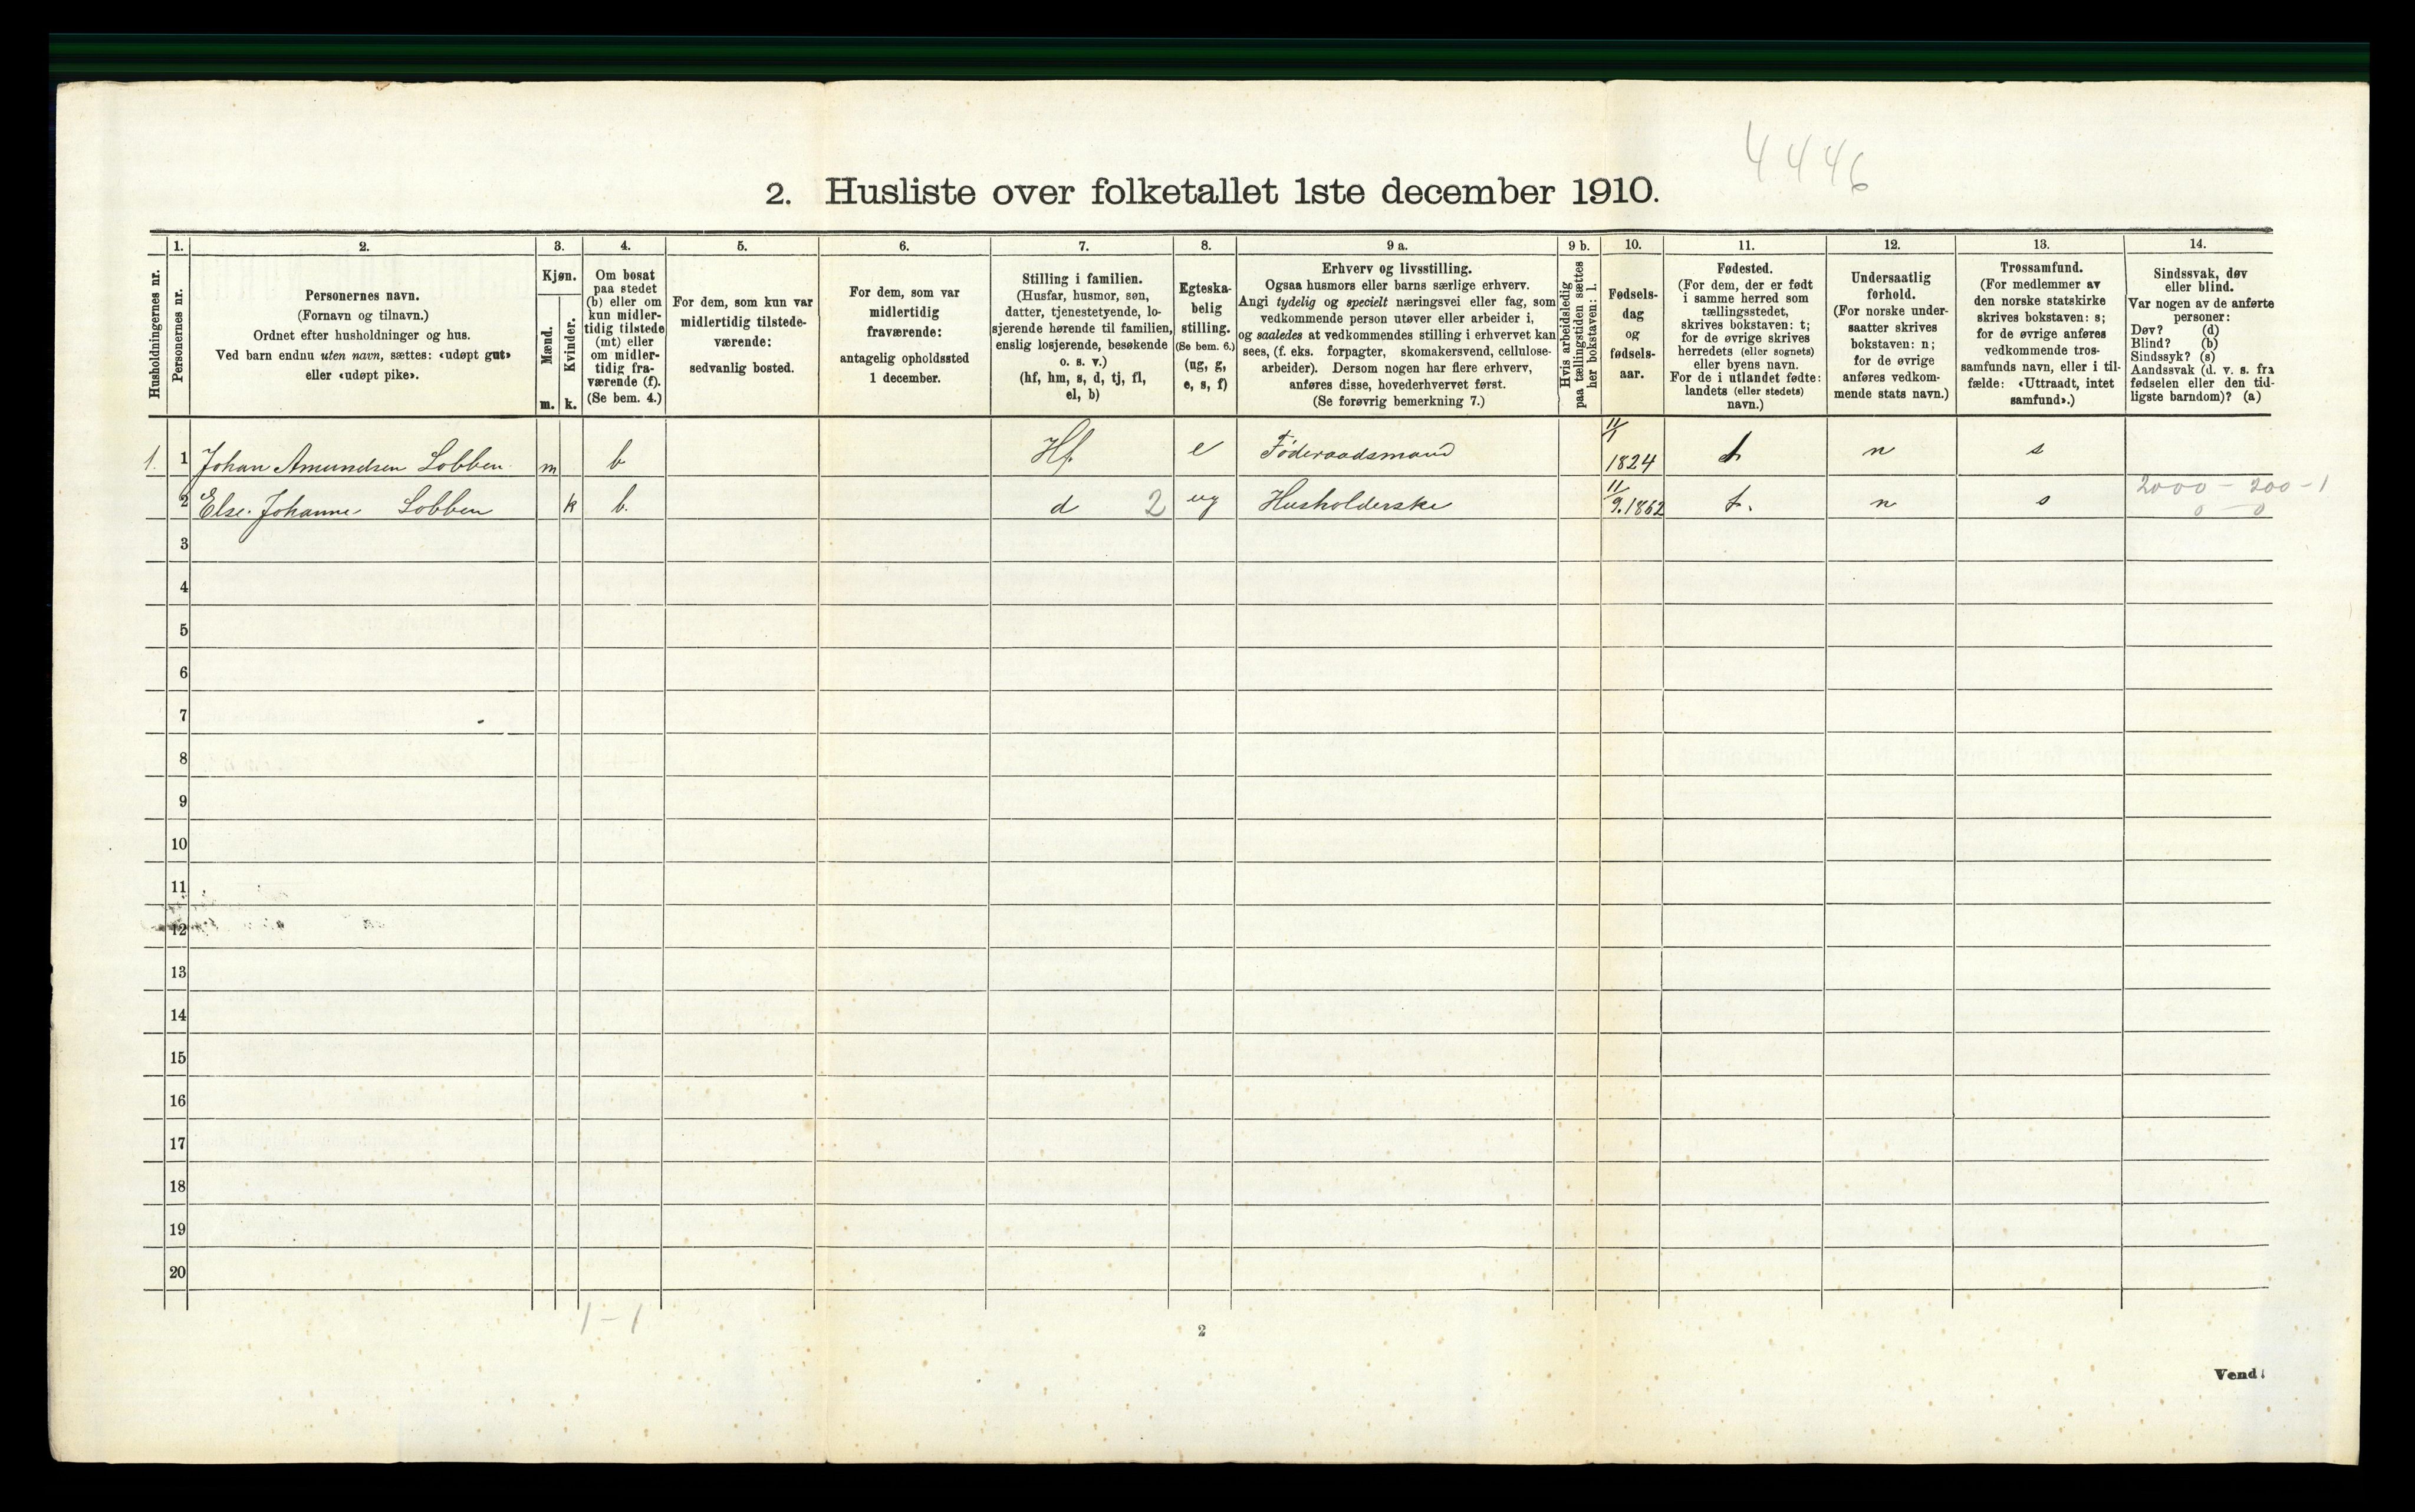 4446
2. Husliste over folketallet 1ste december 1910.
Husholdningernes nr.
1.
Personernes nr.
2.
Personernes navn.
(Fornavn og tilnavn.)
Ordnet efter husholdninger og hus.
Ved barn endnu uten navn, sættes: «udøpt gut»
eller «udøpt pike».
3.
Kjøn.
Mænd.
m.
Kvinder.
k.
4.
Om bosat
paa stedet
(b) eller om
kun midler-
tidig tilstede
(mt) eller
om midler-
tidig fra-
værende (f).
(Se bem. 4.)
5.
For dem, som kun var
midlertidig tilstede-
værende:
sedvanlig bosted.
6.
For dem, som var
midlertidig
fraværende:
antagelig opholdssted
1 december.
7.
Stilling i familien.
(Husfar, husmor, søn,
datter, tjenestetyende, lo-
sjerende hørende til familien,
enslig losjerende, besøkende
o. s. v.)
(hf, hm, s, d, tj, fl,
el, b)
8.
Egteska-
belig
stilling.
(Se bem. 6.)
(ug, g,
e, s, f)
9 a.
Erhverv og livsstilling.
Ogsaa husmors eller barns særlige erhverv.
Angi tydelig og specielt næringsvei eller fag, som
vedkommende person utøver eller arbeider i,
og saaledes at vedkommendes stilling i erhvervet kan
sees, (f. eks. forpagter, skomakersvend, cellulose-
arbeider). Dersom nogen har flere erhverv,
anføres disse, hovederhvervet først.
(Se forøvrig bemerkning 7.)
9 b.
Hvis arbeidsledig
paa tællingstiden sættes
her bokstaven: l.
10.
Fødsels-
dag
og
fødsels-
aar.
11.
Fødested.
(For dem, der er født
i samme herred som
tællingsstedet,
skrives bokstaven: t;
for de øvrige skrives
herredets (eller sognets)
eller byens navn.
For de i utlandet fødte:
landets (eller stedets)
navn.)
12.
Undersaatlig
forhold.
(For norske under-
saatter skrives
bokstaven: n;
for de øvrige
anføres vedkom-
mende stats navn.)
13.
Trossamfund.
(For medlemmer av
den norske statskirke
skrives bokstaven: s;
for de øvrige anføres
vedkommende tros-
samfunds navn, eller i til-
fælde: «Uttraadt, intet
samfund».)
14.
Sindssvak, døv
eller blind.
Var nogen av de anførte
personer:
Døv? (d)
Blind? (b)
Sindssyk? (s)
Aandssvak (d. v. s. fra
fødselen eller den tid-
ligste barndom)? (a)
1. 1 Johan Amundsen Lobben m b Hf. e Føderaadsmand 11/1 1824 t n s
2 Else. Johanne Lobben k b. d 2 ug Husholderske 11/9. 1862 t. n s 2000 - 200 - 1
0 - 0
3
4
5
6
7
8
9
10
11
12
13
14
15
16
17
18
19
20
1 - 1
2
Vend!